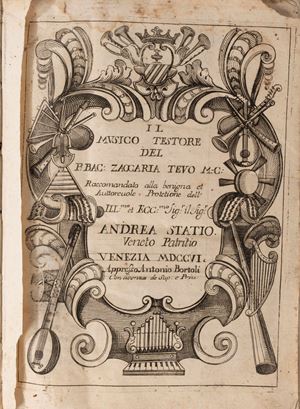 IL
MUSICO TESTORE
DEL
P. BAC: ZACCARIA TEVO M.C:
Raccomandato alla benigna et
Auttoreuole Protetione dell'
Ill.mo et Ecc.mo Sig.r il Sig.r
ANDREA STATIO
Veneto Patritio
VENEZIA MDCCVI.
Appresso Antonio Bortoli
Con licenza de Sup. e Priu.